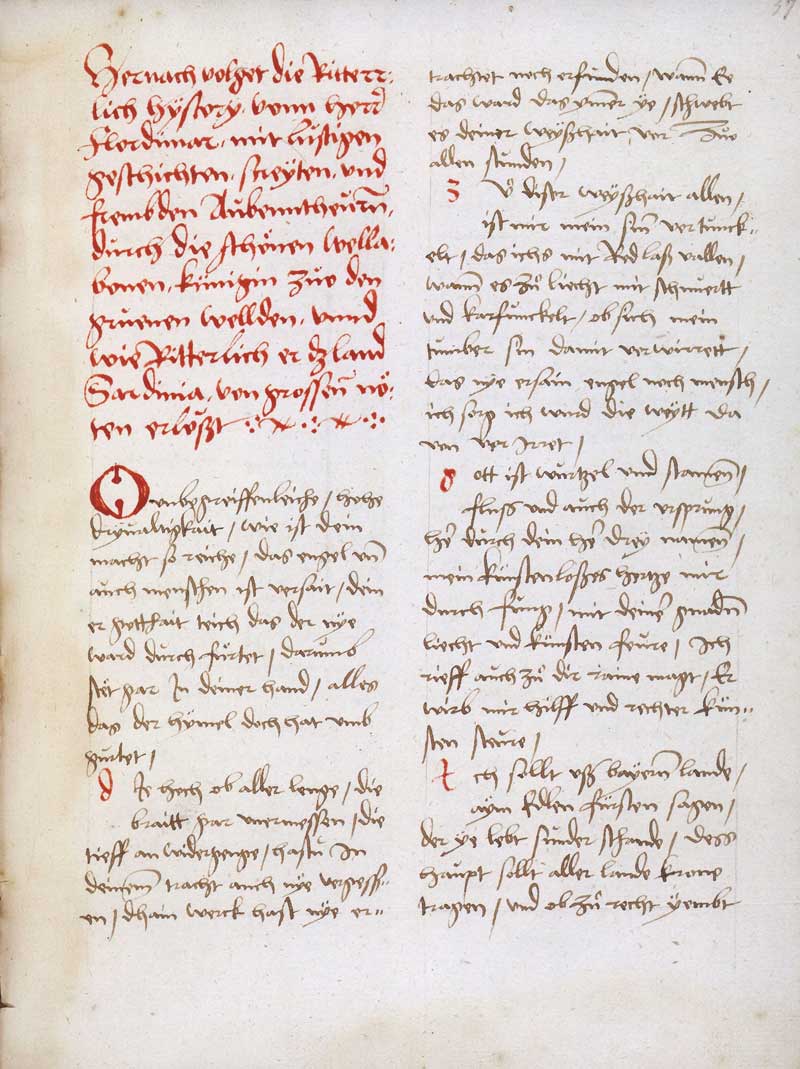 37
Hernach volget die Ritterr-
lich hystory, vonn herr
Flordimar, mit lustigen
geschichten, streyten, vnd
frembden Aubenntheurn̄,
durch die schönen Bella-
bonen, künigin zuo den
gruenen wellden, vnnd
wie Ritterlich er dz land
Sardinia, von grossen̄ nö-
ten erlößt
O vnbegreiffenleiche / hohe
dryualtigkait / wie ist dein
macht so reiche / das engel vn̄
auch menschen ist versait / dein
er gotthait teich das der nye
ward durch fürtet / darumb
stet gar In deiner hand / alles
das der hymel doch hat vmb
gürtet /
d Ie hoch ob aller lenge / die
braitt gar vnermessen / die
tieff an widergenge / hastu In
deinem̄ tracht auch nye vergess-
en / dhain werck hast nye er-
trachtet noch erfunden / wann̄ Ee
das ward das ymer ye / schwebt
es deiner weyßhait vor Zuo
allen stunden /
Z ů diser weyßhait allen /
ist mir mein sin̄ vertunck-
elt / das ichs mit Red laß vallen /
wann̄ es zů liecht mit schnertt
vnd karfunckelt / ob sich mein
tumber sin damit verwirrett /
das nye ersain engel noch mensch /
ich sorg ich wurd die weytt da
von verIrret /
g ott ist wurtzel vnd stam̄en /
fluss vnd auch der vrsprung /
her̄ durch dein her̄ drey nam̄en /
mein künstenloßes hertze mir
durch Jung / mit deiner̄ gnadn̄
liecht vnd künsten feure / Ich
rieff auch zů dir raine magt / Er
wirb mir hilff vnd rechter kün-
sten steure /
I ch sollt vß bayern̄ lande /
aym Edlen fürsten sagen /
der ye lebt sunder schande / dess
haupt sollt aller lande krone
tragen / vnd ob zů recht yembt